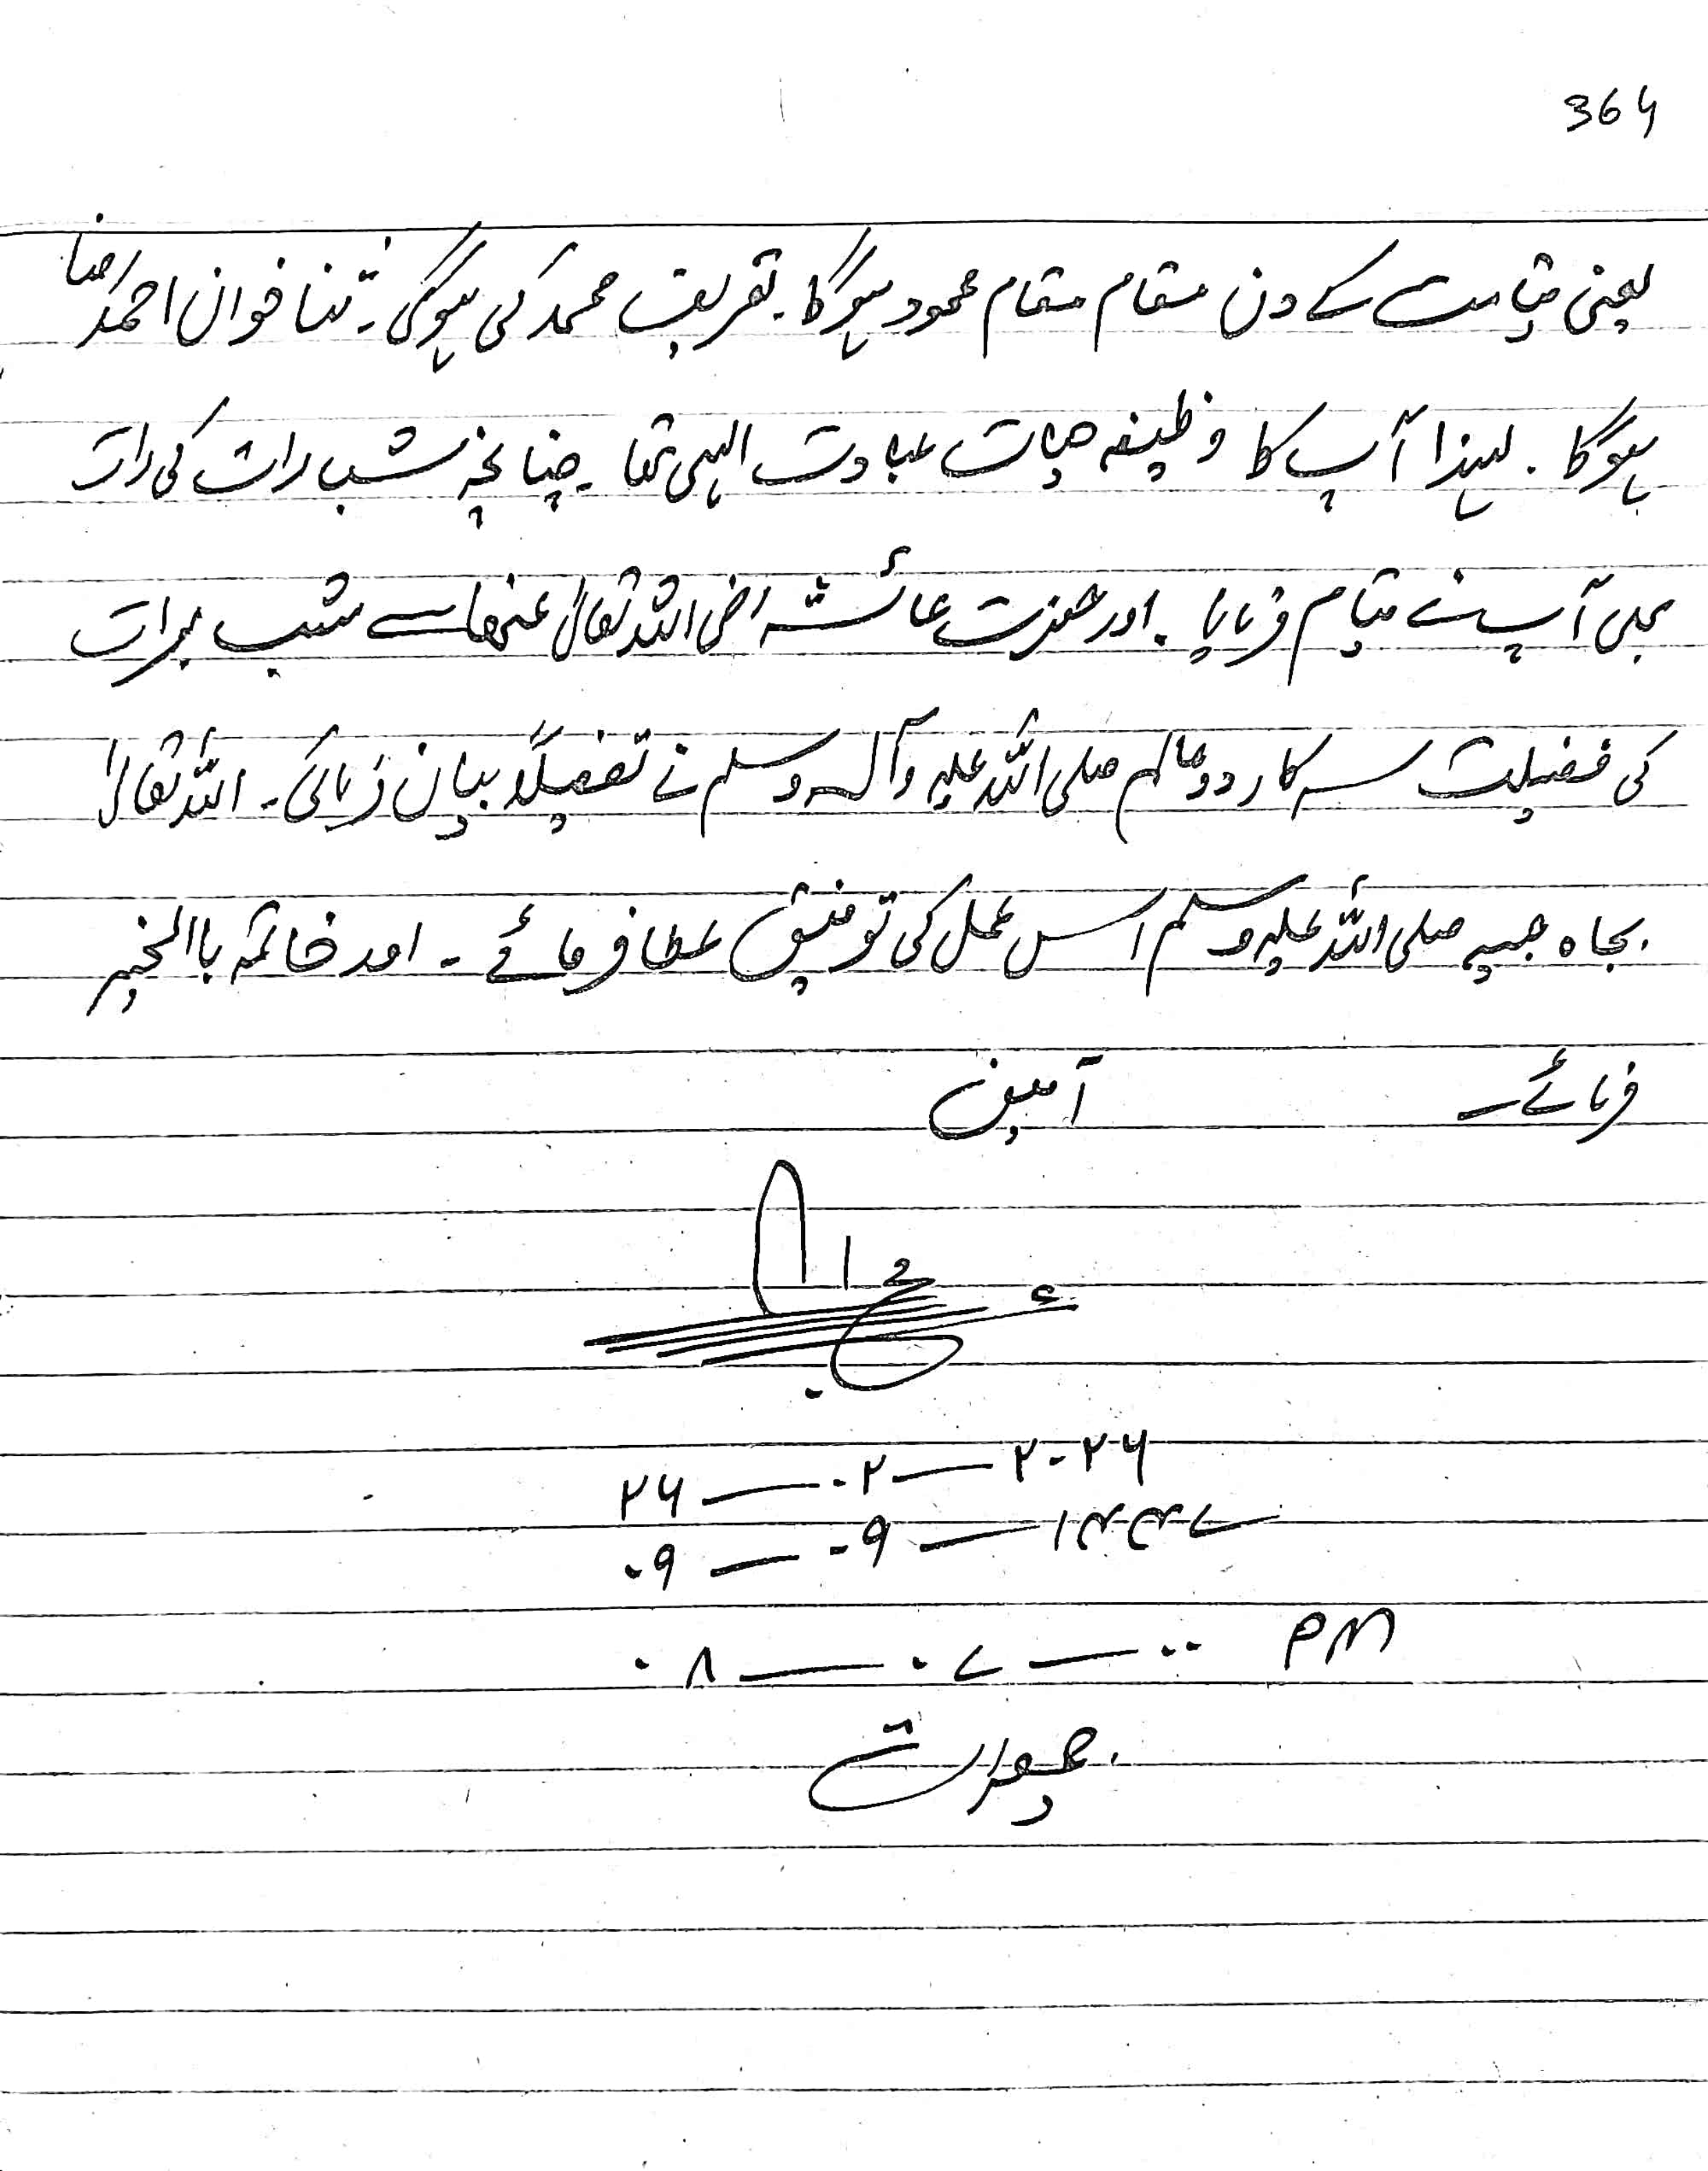 364
یعنی قیامت کے دن مقام مقام محمود ہوگا۔ تعریف محمد کی ہوگی۔ ثنا خوان احمد رضا
ہوگا۔ لہذا آپ کا وظیفہ حیات عبادت الہی تھا۔ چنانچہ شب رات کی رات
بھی آپ نے قیام فرمایا۔ اور حضرت عائشہ رضی اللہ تعالیٰ عنھا سے شب برات
کی فضیلت سرکار دو عالم صلی اللہ علیہ وآلہ وسلم نے تفصیلاً بیان فرمائی۔ اللہ تعالیٰ
بجاہ حبیبہ صلی اللہ علیہ وسلم اس عمل کی توفیق عطا فرمائے۔ اور خاتمہ باالخیر
فرمائے۔ آمین
۲۶ — ۰۲ — ۲۰۲۶
۰۹ — ۰۹ — ۱۴۴۷
۰۸ — ۰۷ — ۰۰ PM
جمعرات